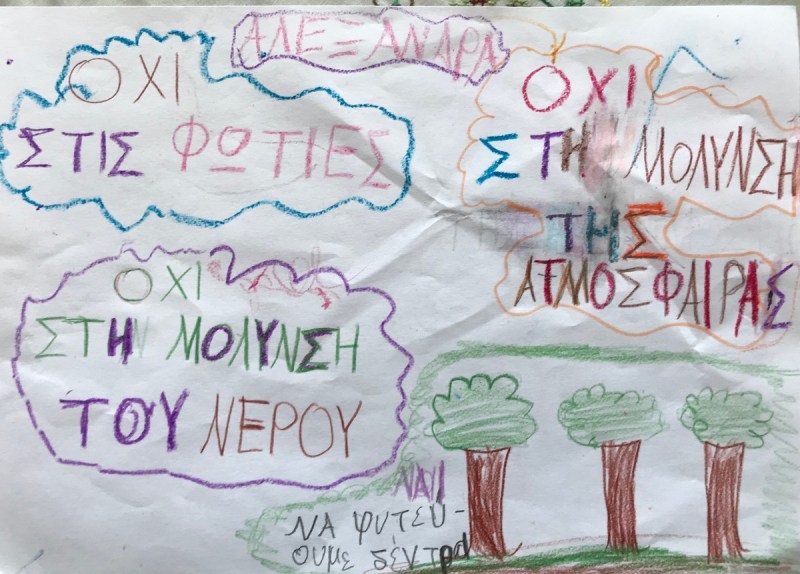 ΑΛΕΞΑΝΔΡΑ
ΟΧΙ
ΣΤΙΣ ΦΩΤΙΕΣ
ΟΧΙ
ΣΤΗ ΜΟΛΥΝΣΗ
ΤΗΣ
ΑΤΜΟΣΦΑΙΡΑΣ
ΟΧΙ
ΣΤΗΝ ΜΟΛΥΝΣΗ
ΤΟΥ ΝΕΡΟΥ
ΝΑΙ
ΝΑ ΦΥΤΕΥ-
ΟΥΜΕ ΔΕΝΤΡΑ